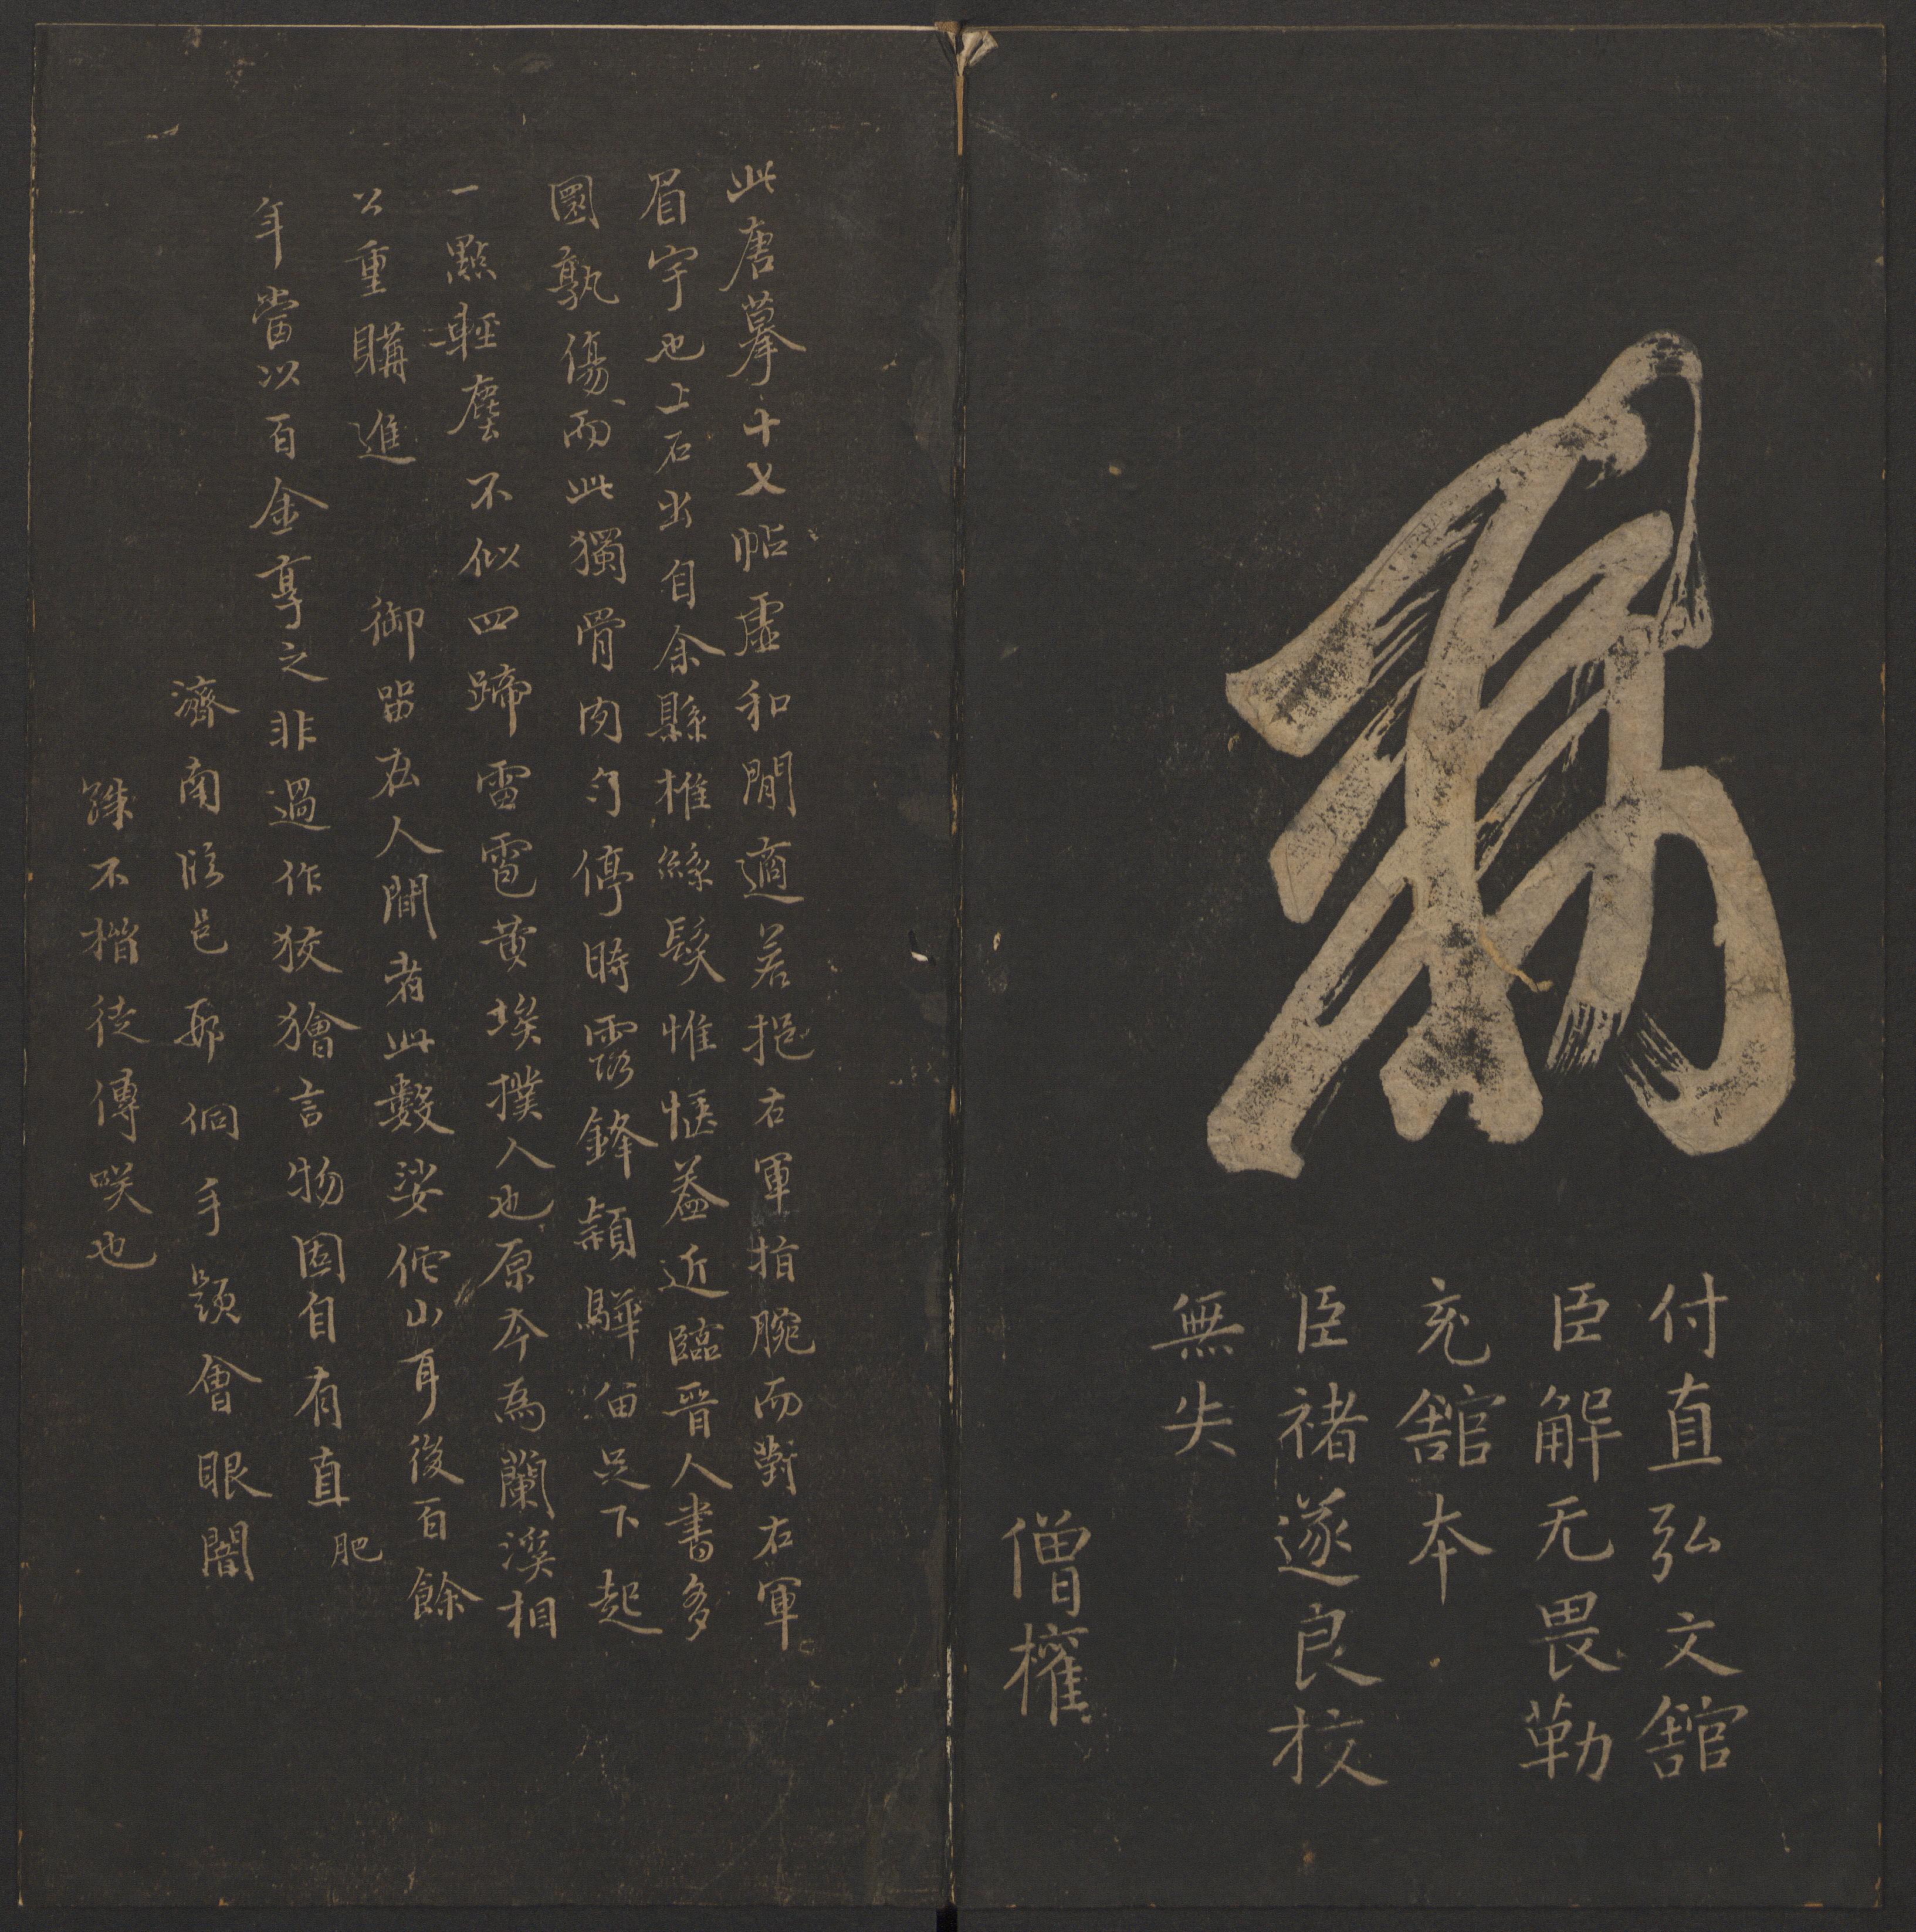 勅
付直弘文館
臣解无畏勒
充館本
臣褚遂良校
無失
僧權
此唐摹十七帖虛和閒適若挹右軍指腕而對右軍
眉宇也上石出自余縣椎絲髮惟愜蓋近臨晉人書多
圓孰傷而此獨骨肉勻停時露鋒穎驊足下起
一點輕塵不似四蹄雷雹黃埃撲人也原本為蘭溪相
公重購進 御留在人間者此數娑佗山耳後百餘
年當以百金享之非過作狡獪言物固自有直肥
濟南臨邑邢侗手題會眼闇
殊不楷徒傳咲也